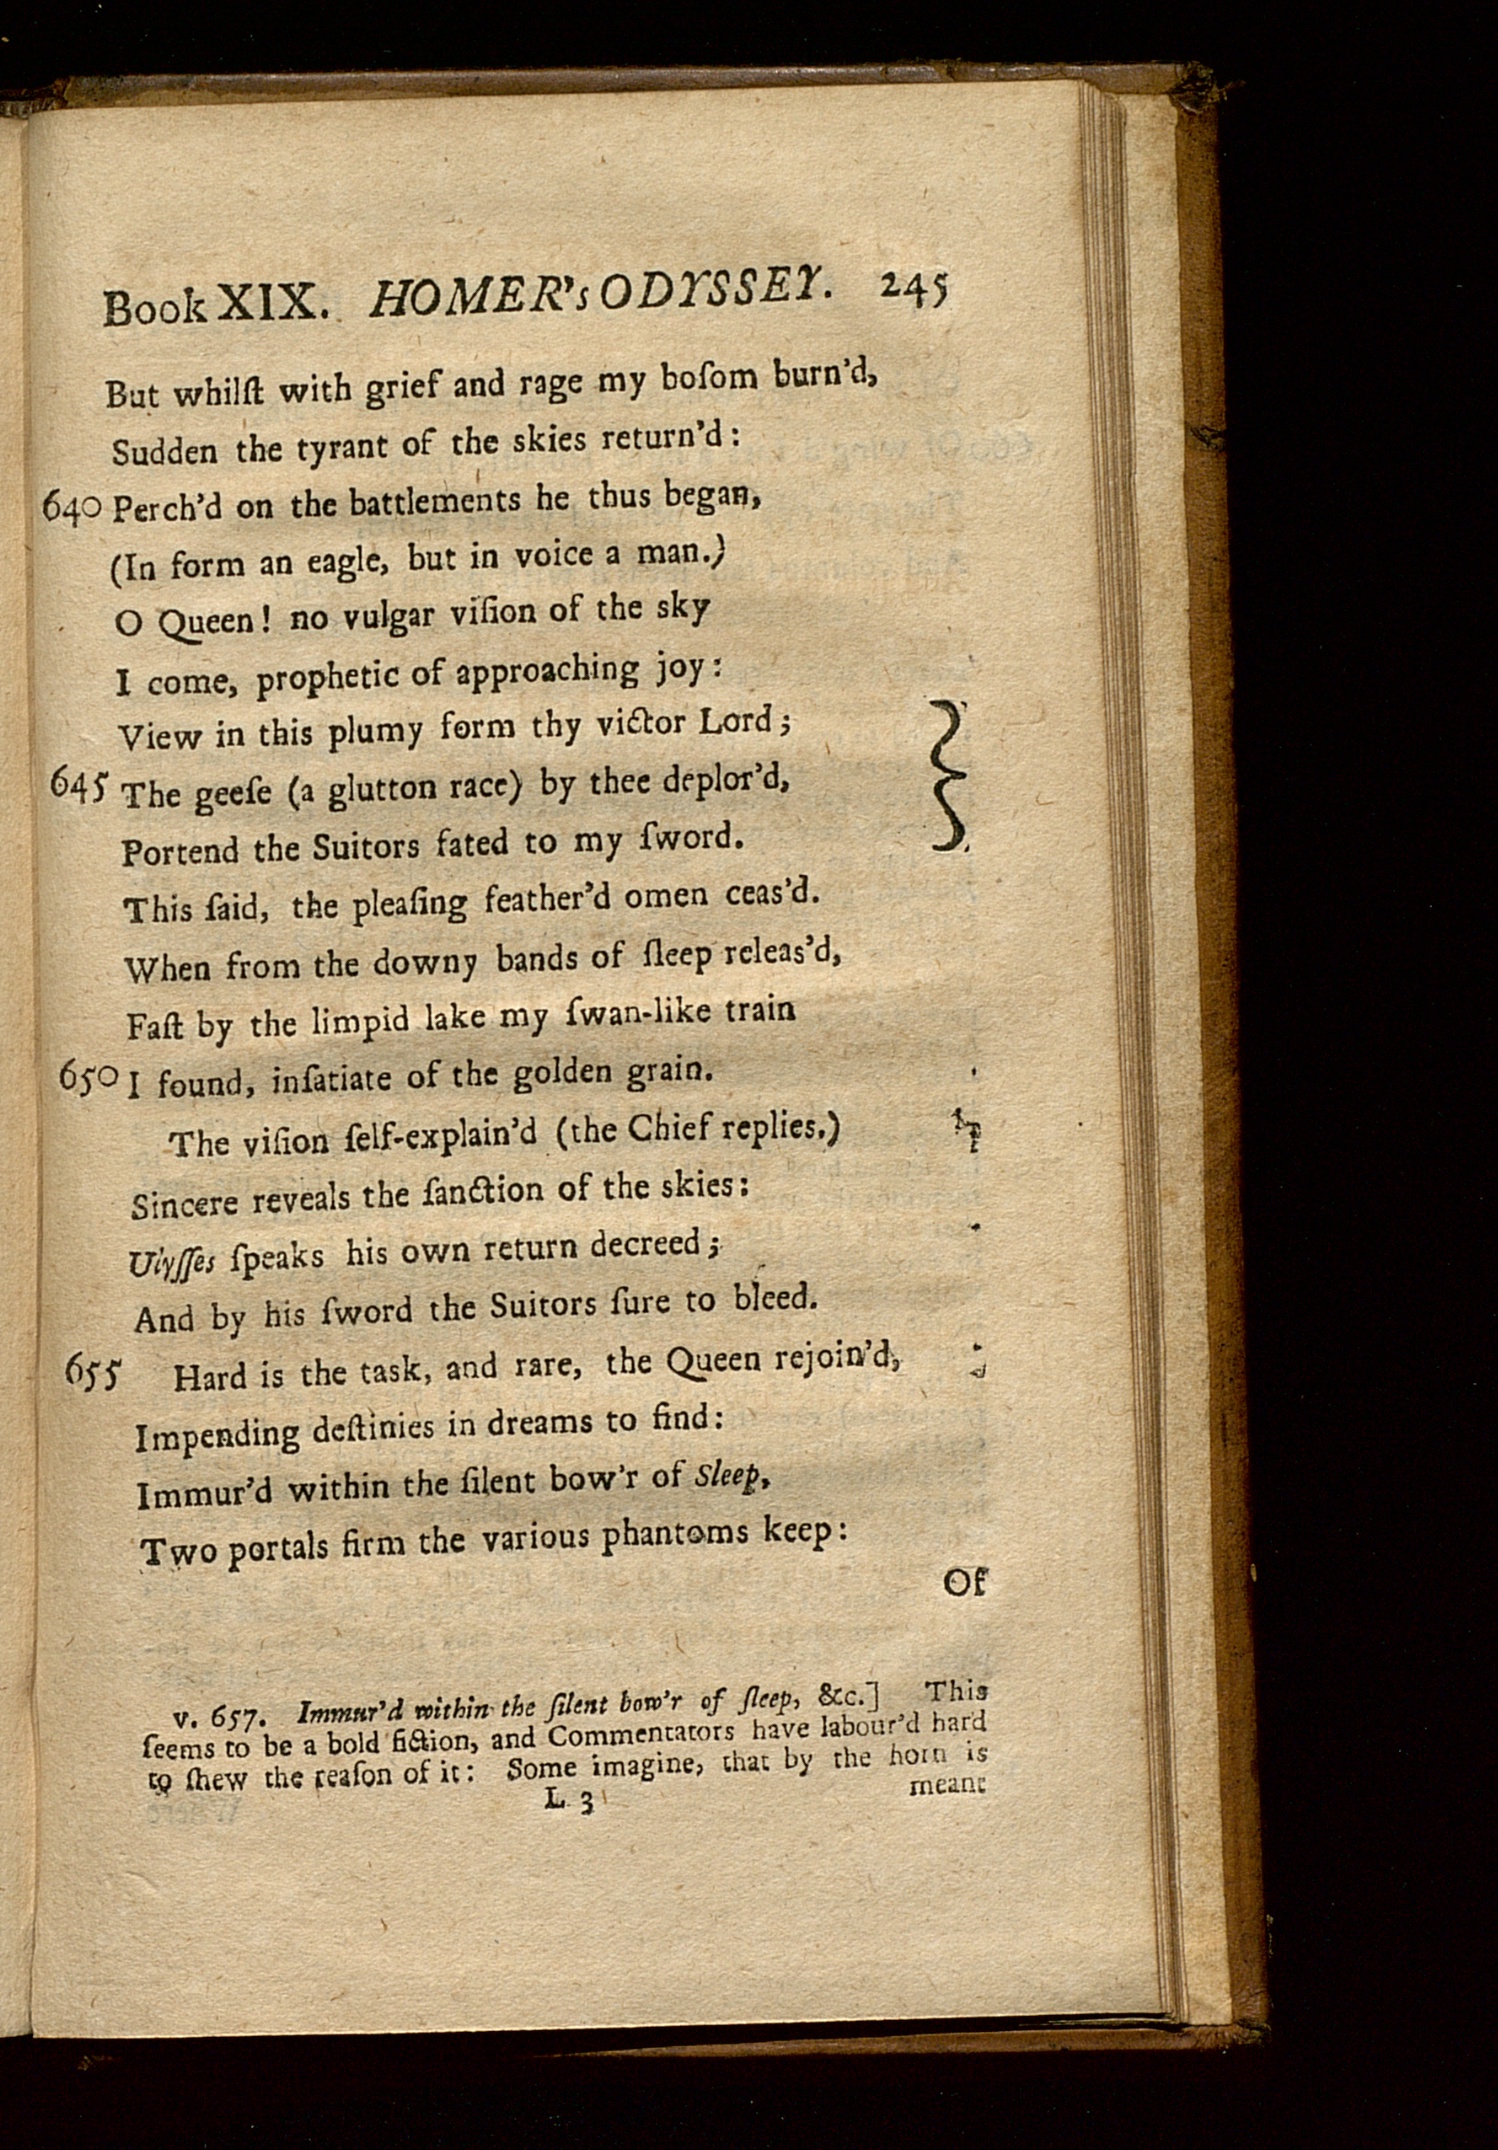 Book XIX. HOMER's ODYSSEY. 245
But whilſt with grief and rage my boſom burn'd,
Sudden the tyrant of the skies return'd:
640 Perch'd on the battlements he thus began,
(In form an eagle, but in voice a man.)
O Queen! no vulgar viſion of the sky
I come, prophetic of approaching joy:
View in this plumy form thy victor Lord;
645 The geeſe (a glutton race) by thee deplor'd,
Portend the Suitors fated to my ſword.
This ſaid, the pleaſing feather'd omen ceas'd.
When from the downy bands of ſleep releas'd,
Faſt by the limpid lake my ſwan-like train
650 I found, inſatiate of the golden grain.
The viſion ſelf-explain'd (the Chief replies.)
Sincere reveals the ſanction of the skies:
Ulyſſes ſpeaks his own return decreed;
And by his ſword the Suitors ſure to bleed.
655 Hard is the task, and rare, the Queen rejoin'd,
Impending deſtinies in dreams to find:
Immur'd within the ſilent bow'r of Sleep,
Two portals firm the various phantoms keep:
Of
v. 657. Immur'd within the ſilent bow'r of ſleep, &c.] This
ſeems to be a bold fiction, and Commentators have labour'd hard
to ſhew the reaſon of it: Some imagine, that by the horn is
L 3 meant